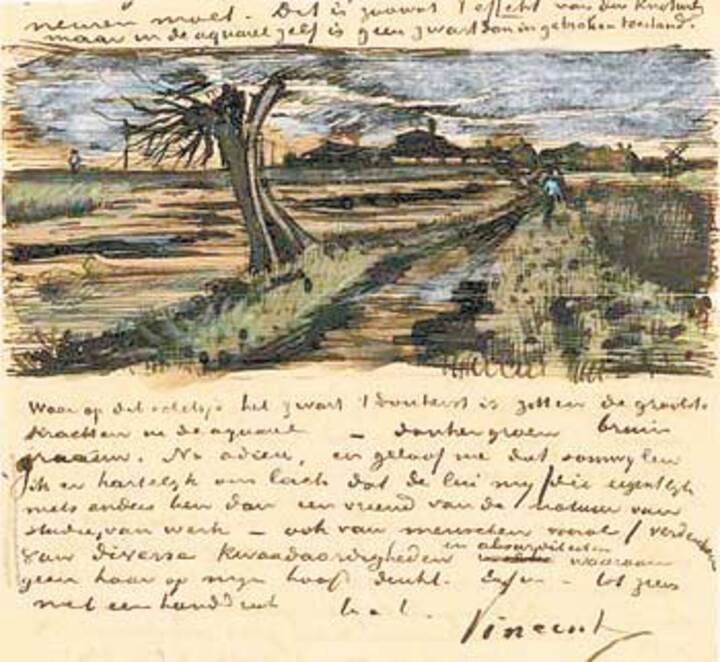 neuren moet. Dat is zoowat 't effect van den Knotwilg
maar in de aquarel zelf is geen zwart dan in gebroken toestand.
Waar op dit schetsje het zwart 't donkerst is zitten de grootste
krachten in de aquarel – donkergroen bruin
graauw. Nu adieu, en geloof me dat somwylen
ik er hartelijk om lach dat de lui my / die eigentlyk
niets anders ben dan een vriend van de natuur van
studie, van werk – ook van menschen vooral / verdenken
van diverse kwaadaardigheden en absurditeiten waaraan
geen haar op myn hoofd denkt. Enfin – tot ziens
met een handdruk t. à t.
Vincent